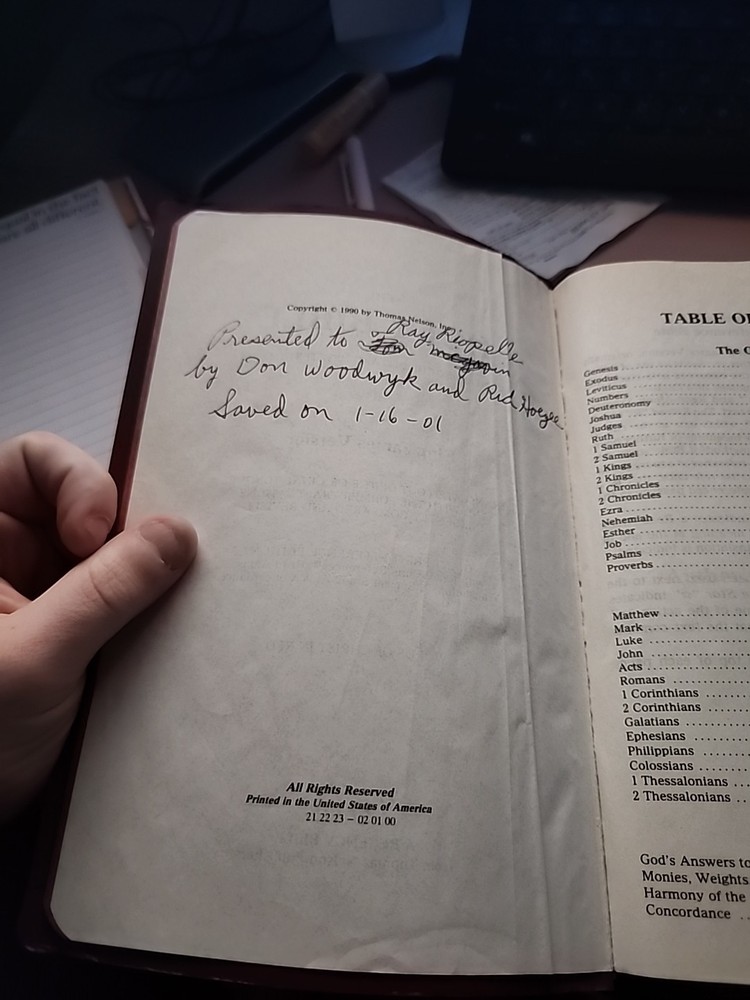 Copyright © 1990 by Thomas Nelson, Inc.
Presented to Ray Riopelle
by Don Woodwyk and Red Hoezee
Saved on 1-16-01
All Rights Reserved
Printed in the United States of America
21 22 23 – 02 01 00
TABLE O
The
Genesis
Exodus
Leviticus
Numbers
Deuteronomy
Joshua
Judges
Ruth
1 Samuel
2 Samuel
1 Kings
2 Kings
1 Chronicles
2 Chronicles
Ezra
Nehemiah
Esther
Job
Psalms
Proverbs
Matthew
Mark
Luke
John
Acts
Romans
1 Corinthians
2 Corinthians
Galatians
Ephesians
Philippians
Colossians
1 Thessalonians
2 Thessalonians
God's Answers to
Monies, Weights
Harmony of the
Concordance